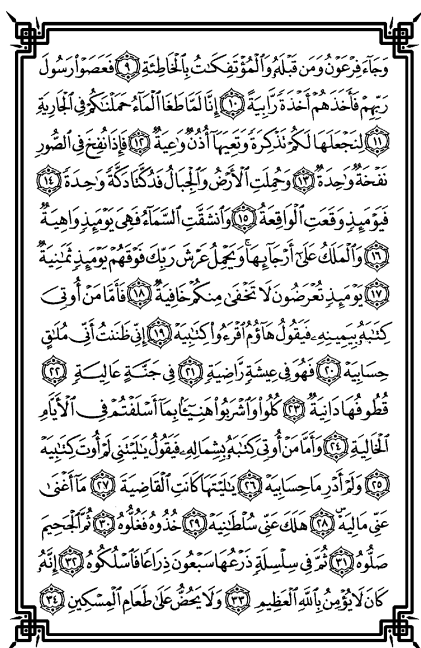 وَجَآءَ فِرْعَوْنُ وَمَن قَبْلَهُۥ وَٱلْمُؤْتَفِكَٰتُ بِٱلْخَاطِئَةِ ٩ فَعَصَوْا۟ رَسُولَ
رَبِّهِمْ فَأَخَذَهُمْ أَخْذَةً رَّابِيَةً ١٠ إِنَّا لَمَّا طَغَا ٱلْمَآءُ حَمَلْنَٰكُمْ فِى ٱلْجَارِيَةِ
١١ لِنَجْعَلَهَا لَكُمْ تَذْكِرَةً وَتَعِيَهَآ أُذُنٌ وَٰعِيَةٌ ١٢ فَإِذَا نُفِخَ فِى ٱلصُّورِ
نَفْخَةٌ وَٰحِدَةٌ ١٣ وَحُمِلَتِ ٱلْأَرْضُ وَٱلْجِبَالُ فَدُكَّتَا دَكَّةً وَٰحِدَةً ١٤
فَيَوْمَئِذٍ وَقَعَتِ ٱلْوَاقِعَةُ ١٥ وَٱنشَقَّتِ ٱلسَّمَآءُ فَهِىَ يَوْمَئِذٍ وَاهِيَةٌ
١٦ وَٱلْمَلَكُ عَلَىٰٓ أَرْجَآئِهَا ۚ وَيَحْمِلُ عَرْشَ رَبِّكَ فَوْقَهُمْ يَوْمَئِذٍ ثَمَٰنِيَةٌ
١٧ يَوْمَئِذٍ تُعْرَضُونَ لَا تَخْفَىٰ مِنكُمْ خَافِيَةٌ ١٨ فَأَمَّا مَنْ أُوتِىَ
كِتَٰبَهُۥ بِيَمِينِهِۦ فَيَقُولُ هَآؤُمُ ٱقْرَءُوا۟ كِتَٰبِيَهْ ١٩ إِنِّى ظَنَنتُ أَنِّى مُلَٰقٍ
حِسَابِيَهْ ٢٠ فَهُوَ فِى عِيشَةٍ رَّاضِيَةٍ ٢١ فِى جَنَّةٍ عَالِيَةٍ ٢٢
قُطُوفُهَا دَانِيَةٌ ٢٣ كُلُوا۟ وَٱشْرَبُوا۟ هَنِيٓـًٔۢا بِمَآ أَسْلَفْتُمْ فِى ٱلْأَيَّامِ
ٱلْخَالِيَةِ ٢٤ وَأَمَّا مَنْ أُوتِىَ كِتَٰبَهُۥ بِشِمَالِهِۦ فَيَقُولُ يَٰلَيْتَنِى لَمْ أُوتَ كِتَٰبِيَهْ
٢٥ وَلَمْ أَدْرِ مَا حِسَابِيَهْ ٢٦ يَٰلَيْتَهَا كَانَتِ ٱلْقَاضِيَةَ ٢٧ مَآ أَغْنَىٰ
عَنِّى مَالِيَهْ ۜ ٢٨ هَلَكَ عَنِّى سُلْطَٰنِيَهْ ٢٩ خُذُوهُ فَغُلُّوهُ ٣٠ ثُمَّ ٱلْجَحِيمَ
صَلُّوهُ ٣١ ثُمَّ فِى سِلْسِلَةٍ ذَرْعُهَا سَبْعُونَ ذِرَاعًا فَٱسْلُكُوهُ ٣٢ إِنَّهُۥ
كَانَ لَا يُؤْمِنُ بِٱللَّهِ ٱلْعَظِيمِ ٣٣ وَلَا يَحُضُّ عَلَىٰ طَعَامِ ٱلْمِسْكِينِ ٣٤